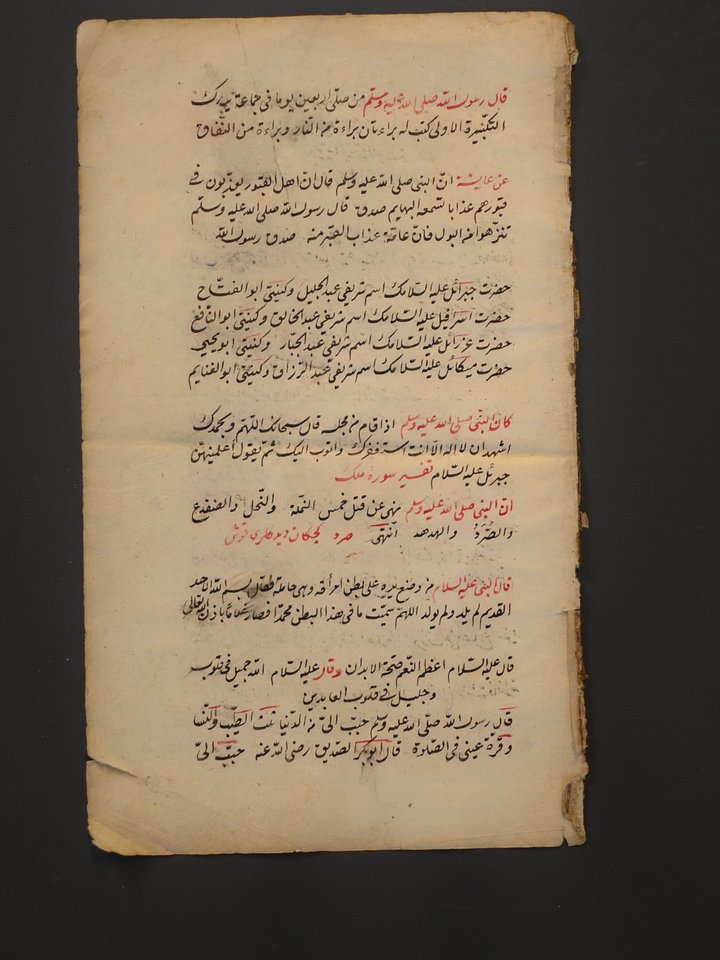 قال رسول الله صلى الله عليه وسلم من صلى اربعين يوما فى جماعة يدرك
التكبيرة الاولى كتب له براءتان براءة من النار وبراءة من النفاق
عن عايشة انّ النبى صلى الله عليه وسلم قال انّ اهل القبور يعذبون فى
قبورهم عذابا تسمعه البهايم صدق قال رسول الله صلى الله عليه وسلم
تنزهوا من البول فانّ عامة عذاب القبر منه صدق رسول الله
حضرت جبرائل عليه السلامك اسم شريفى عبد الجليل وكنيتى ابو الفتاح
حضرت اسرافيل عليه السلامك اسم شريفى عبد الخالق وكنيتى ابو النافع
حضرت عزرائل عليه السلامك اسم شريفى عبد الجبّار وكنيتى ابو يحيى
حضرت ميكائل عليه السلامك اسم شريفى عبد الرزاق وكنيتى ابو الغنايم
كان النبى صلى الله عليه وسلم اذا قام من مجلسه قال سبحانك اللهم وبحمدك
اشهد ان لا اله الا انت استغفرك واتوب اليك ثمّ يقول اعلمنيهن
جبرئل عليه السلام تفسير سورۀ ملك
ان النبى صلى الله عليه وسلم نهى عن قتل خمس النملة والنحل والضفدع
والصُّرَدُ والهدهد انتهى صرد كچكان ديدكلرى قوش
قال النبى عليه السلام من وضع يده على بطن امرأته وهى حاملة فقال بسم الله الاحد
القديم لم يلد ولم يولد اللهم سميت ما فى هذا البطن محمدا فصار غلاما باذن الله تعالى
قال عليه السلام اعظم النعم صحة الابدان وقال عليه السلام الله جميل فى قلوب
وجليل فى قلوب العابدين
قال رسول الله صلى الله عليه وسلم حبب الىّ من الدنيا ثلث الطيب والنسا
وقرة عينى فى الصلوة قال ابو بكر الصديق رضى الله عنه حبب الىّ